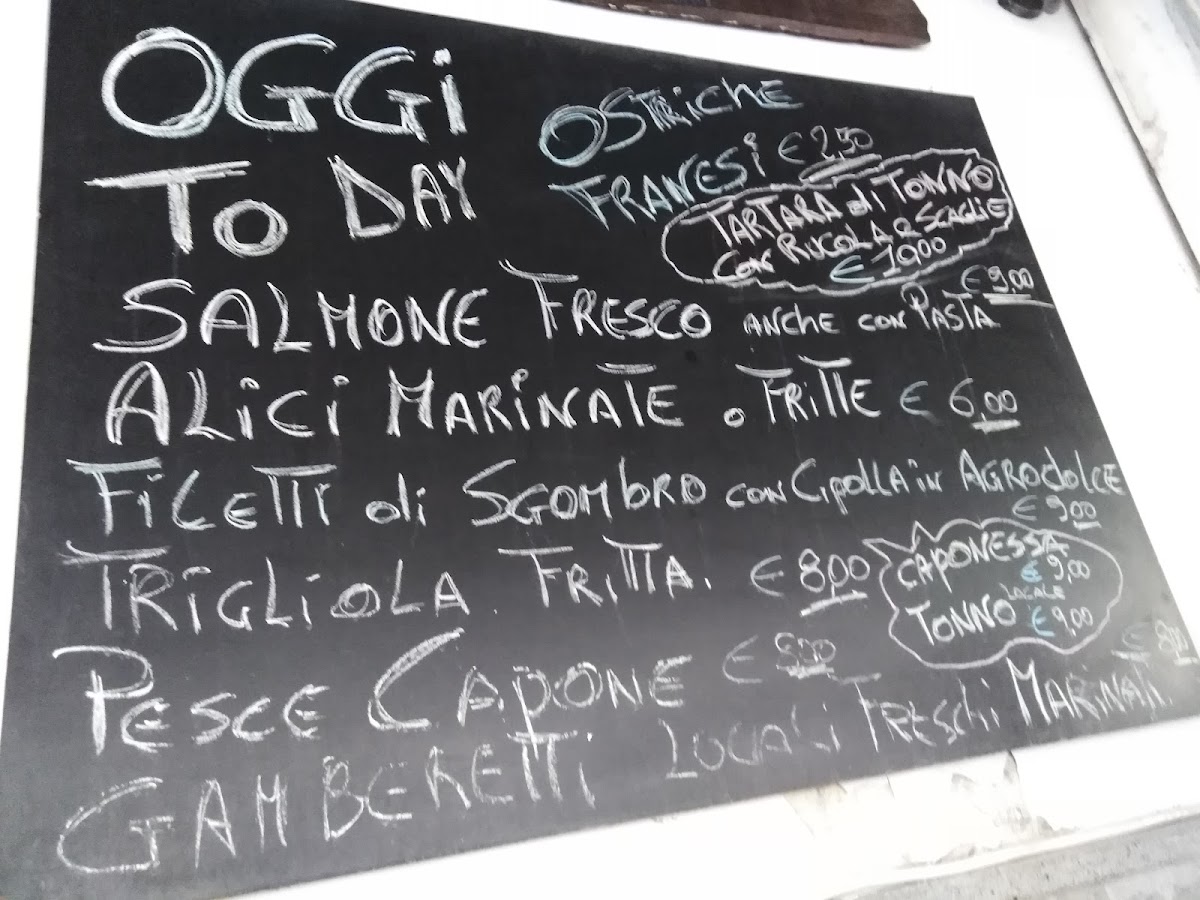 OGGi
TO DAY
OSTRiCHE
FRANESi € 2,50
TARTARA di TONNO
CON RUCOLA e SCAGLIE
€ 19,00
SALMONE FRESCO ANCHE CON PASTA € 9,00
ALiCi MARiNATE o FRiTTE € 6,00
FiLETTi di SGOMbRO CON CipOLLA iN AGROdOLCE
€ 9,00
TRiGLiOLA FRiTTA. € 8,00
CAPONESSA
€ 9,00
LOCALE
TONNO € 9,00
PESCE CAPONE
GAMBERETTi LOCALi FRESCHi MARiNATi. € 8,00